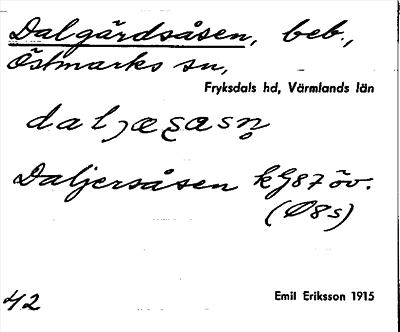 Dalgårdsåsen, beb.,
Östmarks sn,
Fryksdals hd, Värmlands län
Daljersåsen kG87 öv.
(Ø8s)
42
Emil Eriksson 1915